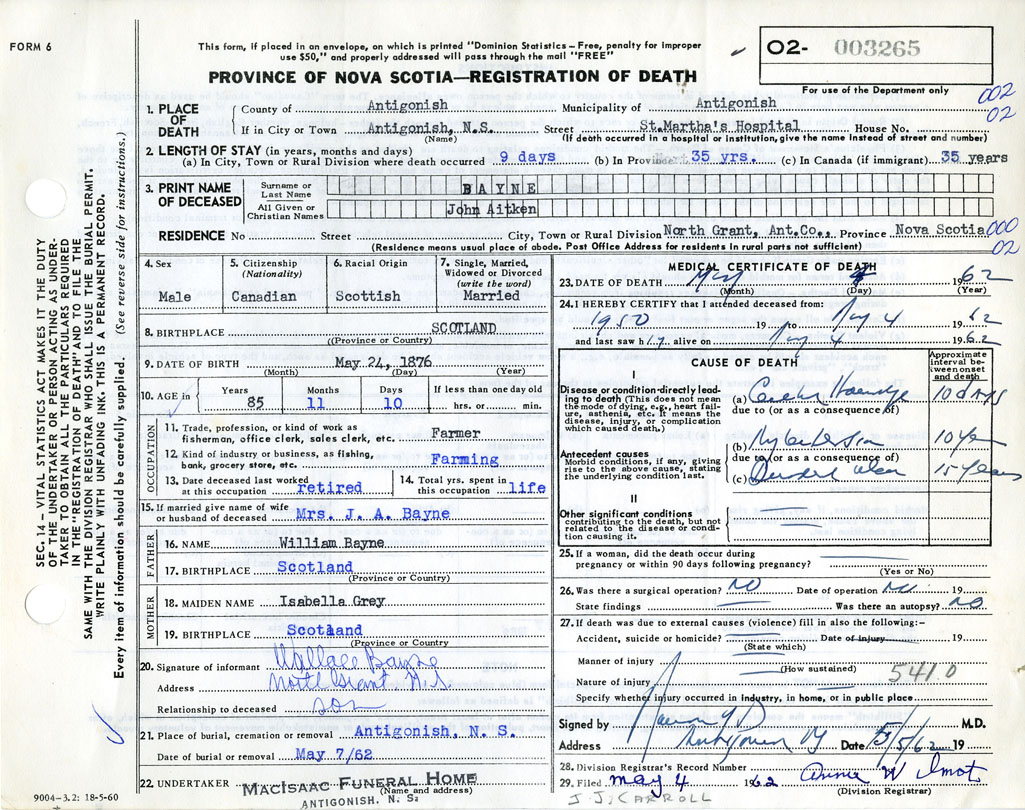 FORM 6
This form, if placed in an envelope, on which is printed "Dominion Statistics – Free, penalty for improper
use $50," and properly addressed will pass through the mail "FREE"
PROVINCE OF NOVA SCOTIA—REGISTRATION OF DEATH
O2- 003265
For use of the Department only
002
02
1. PLACE OF DEATH
County of Antigonish Municipality of Antigonish
If in City or Town Antigonish, N.S. Street St.Martha's Hospital House No.
(Name) (If death occurred in a hospital or institution, give the name instead of street and number)
2. LENGTH OF STAY (in years, months and days)
(a) In City, Town or Rural Division where death occurred 9 days (b) In Province 35 yrs. (c) In Canada (if immigrant) 35 years
3. PRINT NAME OF DECEASED
Surname or Last Name BAYNE
All Given or Christian Names John Aitken
RESIDENCE No Street City, Town or Rural Division North Grant, Ant.Co., Province Nova Scotia
(Residence means usual place of abode. Post Office Address for residents in rural parts not sufficient)
000
02
SEC. 14 – VITAL STATISTICS ACT MAKES IT THE DUTY
OF THE UNDERTAKER OR PERSON ACTING AS UNDER-
TAKER TO OBTAIN ALL THE PARTICULARS REQUIRED
IN THE "REGISTRATION OF DEATH" AND TO FILE THE
SAME WITH THE DIVISION REGISTRAR WHO SHALL ISSUE THE BURIAL PERMIT.
WRITE PLAINLY WITH UNFADING INK. THIS IS A PERMANENT RECORD.
Every item of information should be carefully supplied. (See reverse side for instructions.)
4. Sex
Male
5. Citizenship
(Nationality)
Canadian
6. Racial Origin
Scottish
7. Single, Married,
Widowed or Divorced
(write the word)
Married
8. BIRTHPLACE SCOTLAND
((Province or Country)
9. DATE OF BIRTH May 24, 1876
(Month) (Day) (Year)
10. AGE in
Years 85
Months 11
Days 10
If less than one day old
hrs. or min.
OCCUPATION
11. Trade, profession, or kind of work as
fisherman, office clerk, sales clerk, etc. Farmer
12. Kind of industry or business, as fishing,
bank, grocery store, etc. Farming
13. Date deceased last worked
at this occupation retired
14. Total yrs. spent in
this occupation life
15. If married give name of wife
or husband of deceased Mrs. J. A. Bayne
FATHER
16. NAME William Bayne
17. BIRTHPLACE Scotland
(Province or Country)
MOTHER
18. MAIDEN NAME Isabella Grey
19. BIRTHPLACE Scotland
(Province or Country
20. Signature of informant Wallace Bayne
Address North Grant, N.S.
Relationship to deceased son
21. Place of burial, cremation or removal Antigonish, N. S.
Date of burial or removal May 7/62
22. UNDERTAKER MacIsaac Funeral Home
(Name and address)
ANTIGONISH, N. S.
9004-3.2: 18-5-60
MEDICAL CERTIFICATE OF DEATH
23. DATE OF DEATH May 4 1962
(Month) (Day) (Year)
24. I HEREBY CERTIFY that I attended deceased from:
1950 19 to May 4 1962
and last saw him alive on May 4 1962
CAUSE OF DEATH
Approximate
interval be-
tween onset
and death
I
Disease or condition directly lead-
ing to death (This does not mean
the mode of dying, e.g., heart fail-
ure, asthenia, etc. It means the
disease, injury, or complication
which caused death.)
(a) 10 days
due to (or as a consequence of)
Antecedent causes
Morbid conditions, if any, giving
rise to the above cause, stating
the underlying condition last.
(b) 10 yrs
due to (or as a consequence of)
(c) Duodenal ulcer 15 years
II
Other significant conditions
contributing to the death, but not
related to the disease or condi-
tion causing it.
25. If a woman, did the death occur during
pregnancy or within 90 days following pregnancy?
(Yes or No)
26. Was there a surgical operation? No Date of operation No 19
State findings Was there an autopsy? No
27. If death was due to external causes (violence) fill in also the following:–
Accident, suicide or homicide? Date of injury 19
(State which)
Manner of injury
(How sustained)
Nature of injury 541.0
Specify whether injury occurred in industry, in home, or in public place
Signed by M.D.
Address Date 5/5/62 19
28. Division Registrar's Record Number
29. Filed may 4 1962 Annie W
(Division Registrar)
J. J. CARROLL